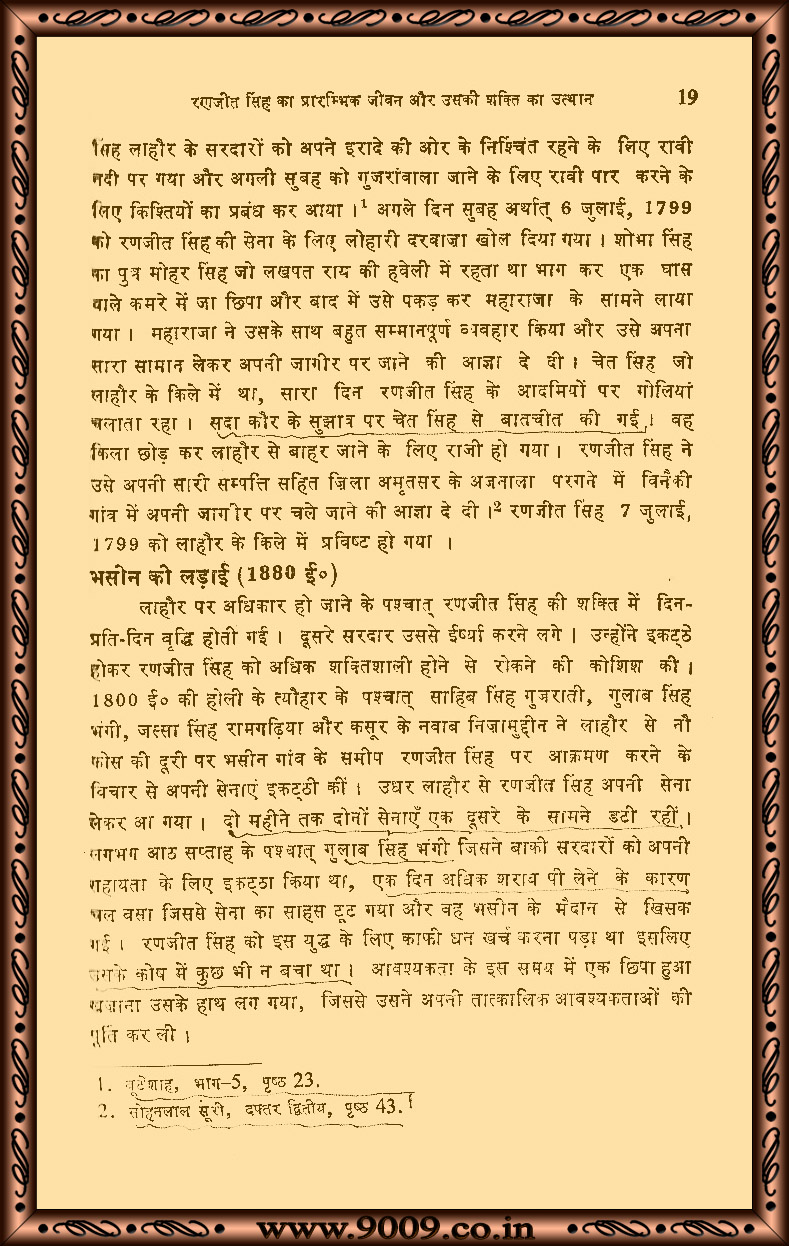 रणजीत सिंह का प्रारम्भिक जीवन और उसकी शक्ति का उत्थान 19
सिंह लाहौर के सरदारों को अपने इरादे की ओर के निश्चिंत रहने के लिए रावी
नदी पर गया और अगली सुबह को गुजरांवाला जाने के लिए रावी पार करने के
लिए किश्तियों का प्रबंध कर आया ।1 अगले दिन सुबह अर्थात् 6 जुलाई, 1799
को रणजीत सिंह की सेना के लिए लोहारी दरवाजा खोल दिया गया । शोभा सिंह
का पुत्र मोहर सिंह जो लखपत राय की हवेली में रहता था भाग कर एक घास
वाले कमरे में जा छिपा और बाद में उसे पकड़ कर महाराजा के सामने लाया
गया । महाराजा ने उसके साथ बहुत सम्मानपूर्ण व्यवहार किया और उसे अपना
सारा सामान लेकर अपनी जागीर पर जाने की आज्ञा दे दी । चेत सिंह जो
लाहौर के किले में था, सारा दिन रणजीत सिंह के आदमियों पर गोलियां
चलाता रहा । सदा कौर के सुझाव पर चेत सिंह से बातचीत की गई । वह
किला छोड़ कर लाहौर से बाहर जाने के लिए राजी हो गया । रणजीत सिंह ने
उसे अपनी सारी सम्पत्ति सहित ज़िला अमृतसर के अजनाला परगने में विनैकी
गांव में अपनी जागीर पर चले जाने की आज्ञा दे दी ।2 रणजीत सिंह 7 जुलाई,
1799 को लाहौर के किले में प्रविष्ट हो गया ।
भसीन की लड़ाई (1880 ई०)
लाहौर पर अधिकार हो जाने के पश्चात् रणजीत सिंह की शक्ति में दिन-
प्रति-दिन वृद्धि होती गई । दूसरे सरदार उससे ईर्ष्या करने लगे । उन्होंने इकट्ठे
होकर रणजीत सिंह को अधिक शक्तिशाली होने से रोकने की कोशिश की ।
1800 ई० की होली के त्यौहार के पश्चात् साहिब सिंह गुजराती, गुलाब सिंह
भंगी, जस्सा सिंह रामगढ़िया और कसूर के नवाब निजामुद्दीन ने लाहौर से नौ
कोस की दूरी पर भसीन गांव के समीप रणजीत सिंह पर आक्रमण करने के
विचार से अपनी सेनाएं इकट्ठी कीं । उधर लाहौर से रणजीत सिंह अपनी सेना
लेकर आ गया । दो महीने तक दोनों सेनाएँ एक दूसरे के सामने डटी रहीं ।
लगभग आठ सप्ताह के पश्चात् गुलाब सिंह भंगी जिसने बाकी सरदारों को अपनी
सहायता के लिए इकट्ठा किया था, एक दिन अधिक शराब पी लेने के कारण
चल बसा जिससे सेना का साहस टूट गया और वह भसीन के मैदान से खिसक
गई । रणजीत सिंह को इस युद्ध के लिए काफी धन खर्च करना पड़ा था इसलिए
उसके कोष में कुछ भी न बचा था । आवश्यकता के इस समय में एक छिपा हुआ
खज़ाना उसके हाथ लग गया, जिससे उसने अपनी तात्कालिक आवश्यकताओं की
पूर्ति कर ली ।
1. बूटेशाह, भाग-5, पृष्ठ 23.
2. सोहनलाल सूरी, दफ्तर द्वितीय, पृष्ठ 43.
www.9009.co.in